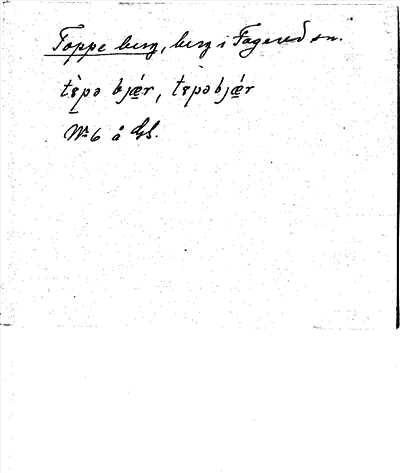 Toppe berg, berg i Fagered sn.
tɛ̀pə bjǽr, tɛpəbjǽr
Nr 6 å Gs.